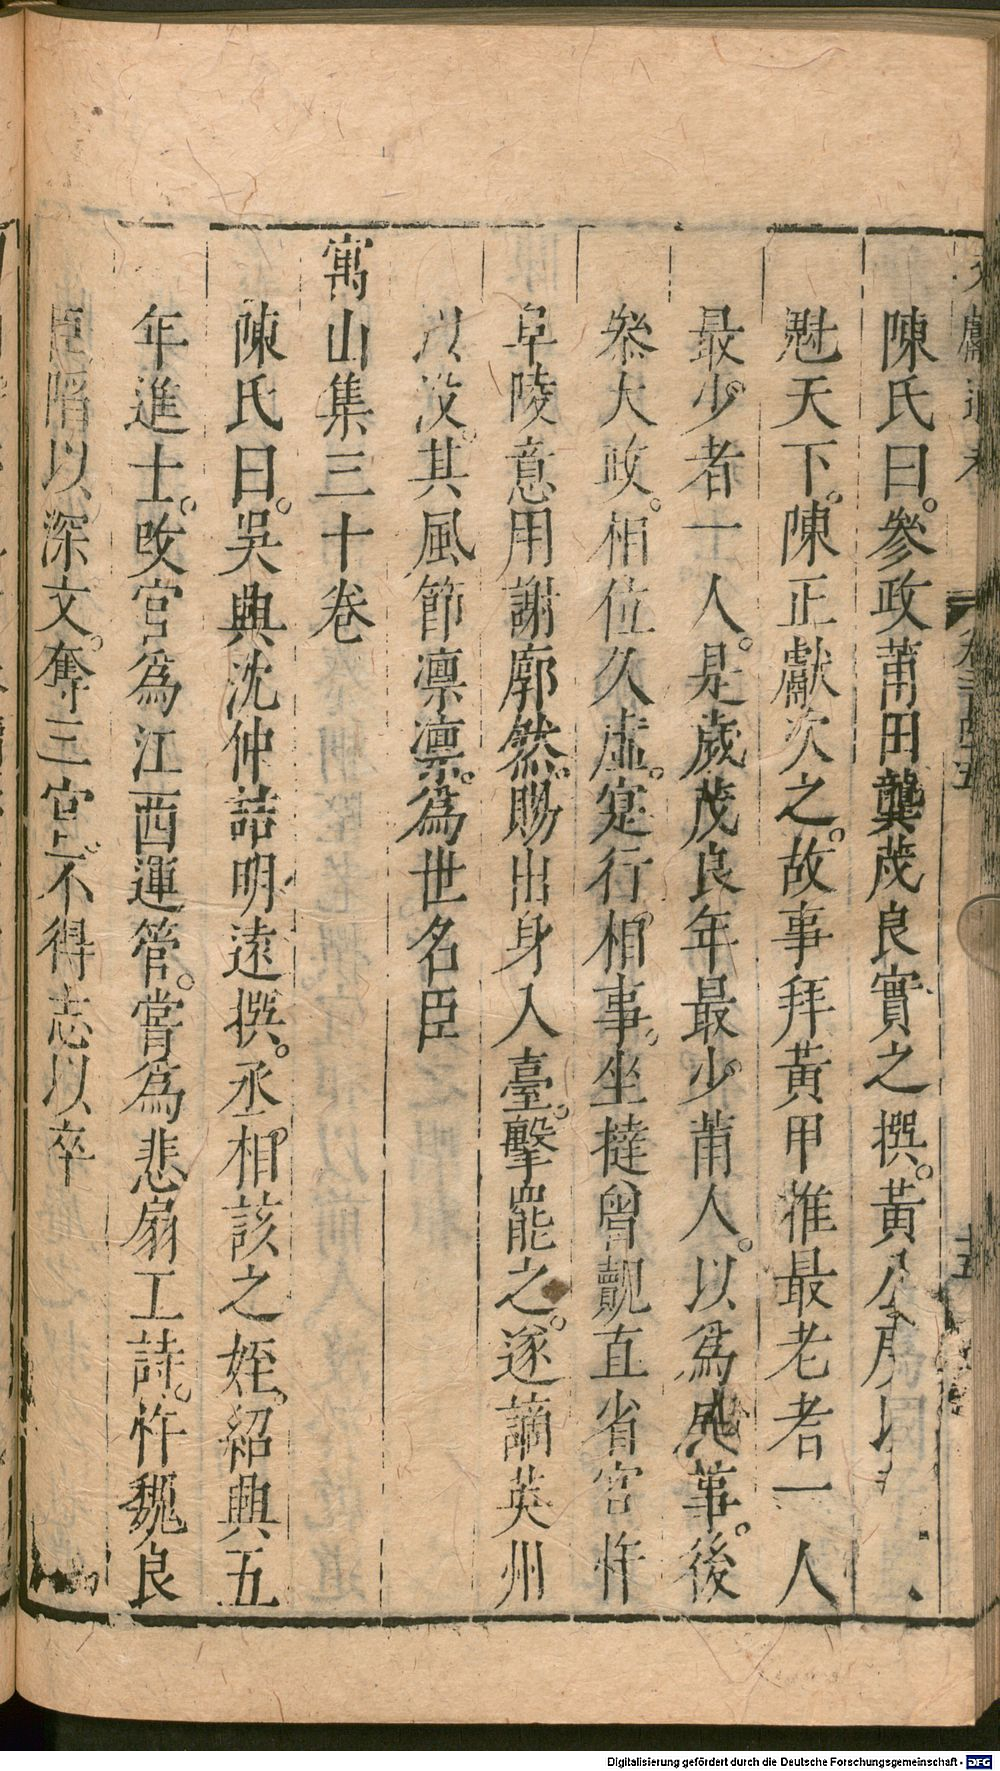 陳氏曰。參政莆田龔茂良實之撰。黃公度以
魁天下。陳正獻次之。故事拜黃甲推最老者一人
最少者一人。是歲茂良年最少。莆人。以爲盛事。後
叅大政。相位久虛。寔行相事。坐撻曾覿直省官忤
阜陵意用謝廓然。賜出身入臺。擊罷之。遂謫英州
以沒。其風節凛凛。爲世名臣
寓山集三十卷
陳氏曰。吳興沈仲喆明遠撰。丞相該之姪。紹興五
年進士。改官爲江西運管。嘗爲悲扇工詩。忤魏良
臣陷以深文。奪三官。不得志以卒
Digitalisierung gefördert durch die Deutsche Forschungsgemeinschaft - DFG